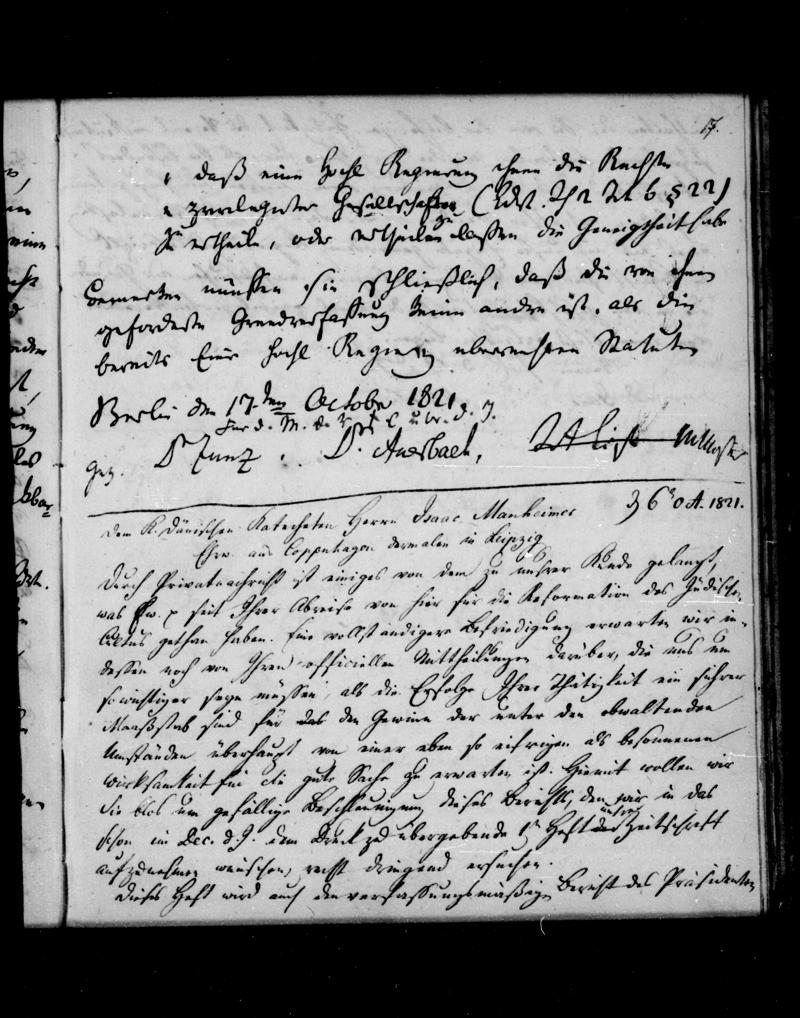 17.
" daß eine Hochl Regierung ihnen die Rechte
" privilegirter Gesellschaften (Edst. Th 2 Tit 6 § 22)
zu ertheilen, oder ertheilen zu lassen die Geneigtheit habe
bemerken müssen sie schließlich, daß die von ihnen
geforderte Grundverfassung keine andre ist, als die
bereits Einer Hochl Regierung überreichten Statuten
Berlin den 17.ten October 1821
Für d. M. d. V. f. C. u W. d. J.
gez. Dr Zunz. Dr. Auerbach, M Moser
36 Oct. 1821.
Dem K. Dänischen Katecheten Herrn Isaac Manheimer
Ehrw. aus Coppenhagen dermalen in Leipzig
Durch Privatnachricht ist einiges von dem zu unsrer Kunde gelangt,
was Ew. p seit Ihrer Abreise von hier für die Reformation des Jüdischen
Cultus gethan haben. Eine vollständigere Befriedigung erwarten wir in-
dessen noch von Ihren officiellen Mittheilungen darüber, die uns um
so wichtiger seyn müssen, als die Erfolge Ihrer Thätigkeit ein sichrer
Maaßstab sind für das den Gewinn der unter den obwaltenden
Umständen überhaupt von einer eben so eifrigen als besonnenen
Wirksamkeit für die gute Sache zu erwarten ist. Hiermit wollen wir
Sie blos um gefällige Beschleunigung dieses Berichts, den wir in das
schon im Dec. d. J. dem Druck zu übergebende 1te Heft unsrer Zeitschrift
aufzunehmen wünschen, recht dringend ersuchen.
Dieses Heft wird auch den verfassungsmäßigen Bericht des Präsidenten